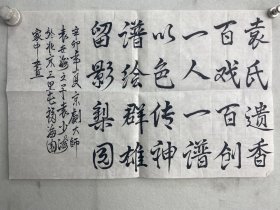 袁氏遗香
百戏百创
一人一谱
以色传神
谱绘群雄
留影梨园
辛卯年夏京剧大师
袁世海之子袁少海
於北京三里屯福海园
家中 书